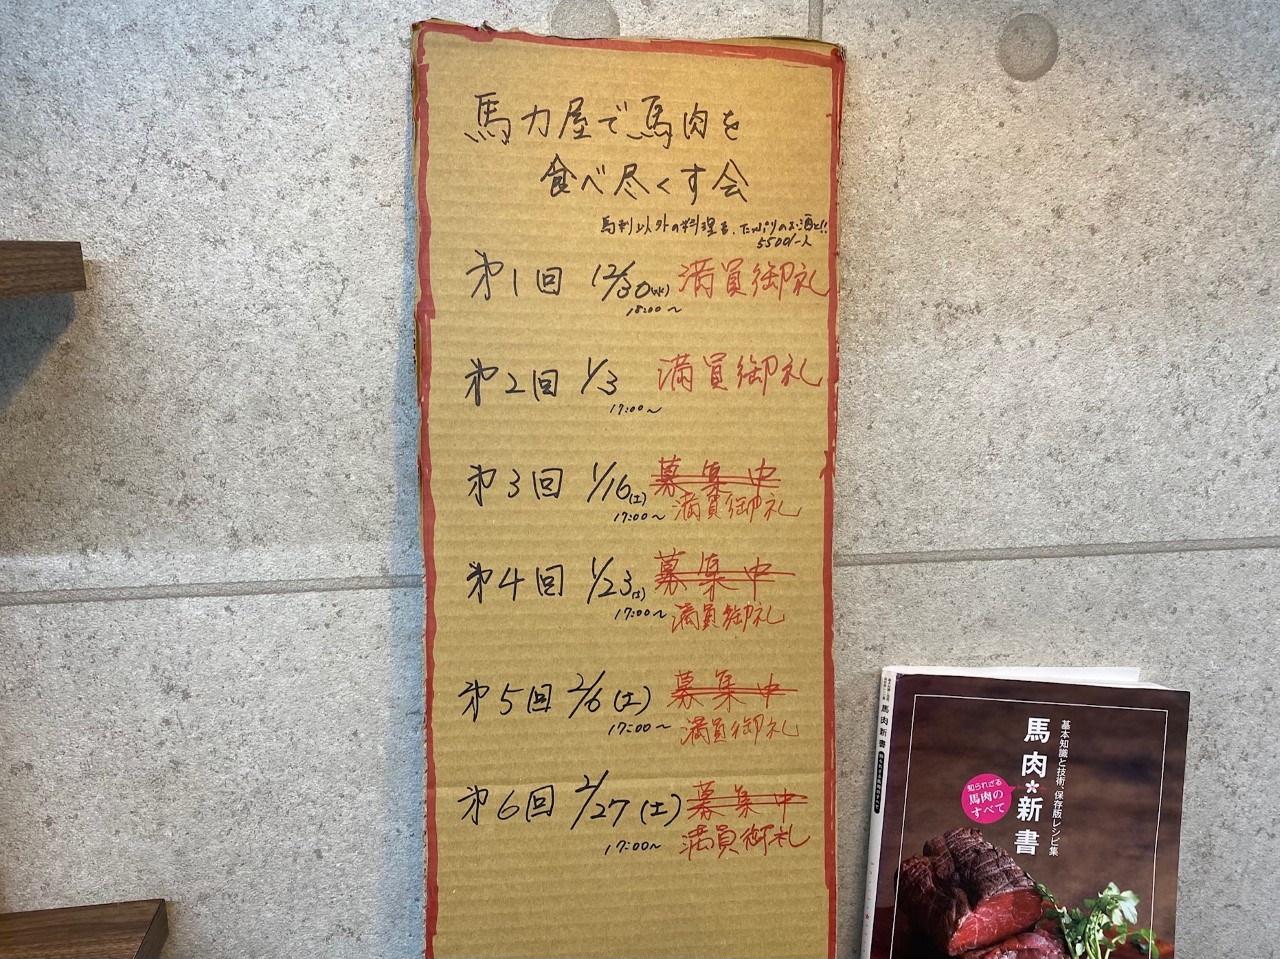 馬力屋で馬肉を
食べ尽くす会
馬刺以外の料理を、たっぷりのお酒と!!
5500/一人
第1回 12/30(水) 満員御礼
18:00～
第2回 1/3 満員御礼
17:00～
第3回 1/16(土) 募集中
17:00～ 満員御礼
第4回 1/23(土) 募集中
17:00～ 満員御礼
第5回 2/6(土) 募集中
17:00～ 満員御礼
第6回 2/27(土) 募集中
17:00～ 満員御礼
基本知識と技術、保存版レシピ集
馬肉*新書
知られざる
馬肉の
すべて
馬肉新書